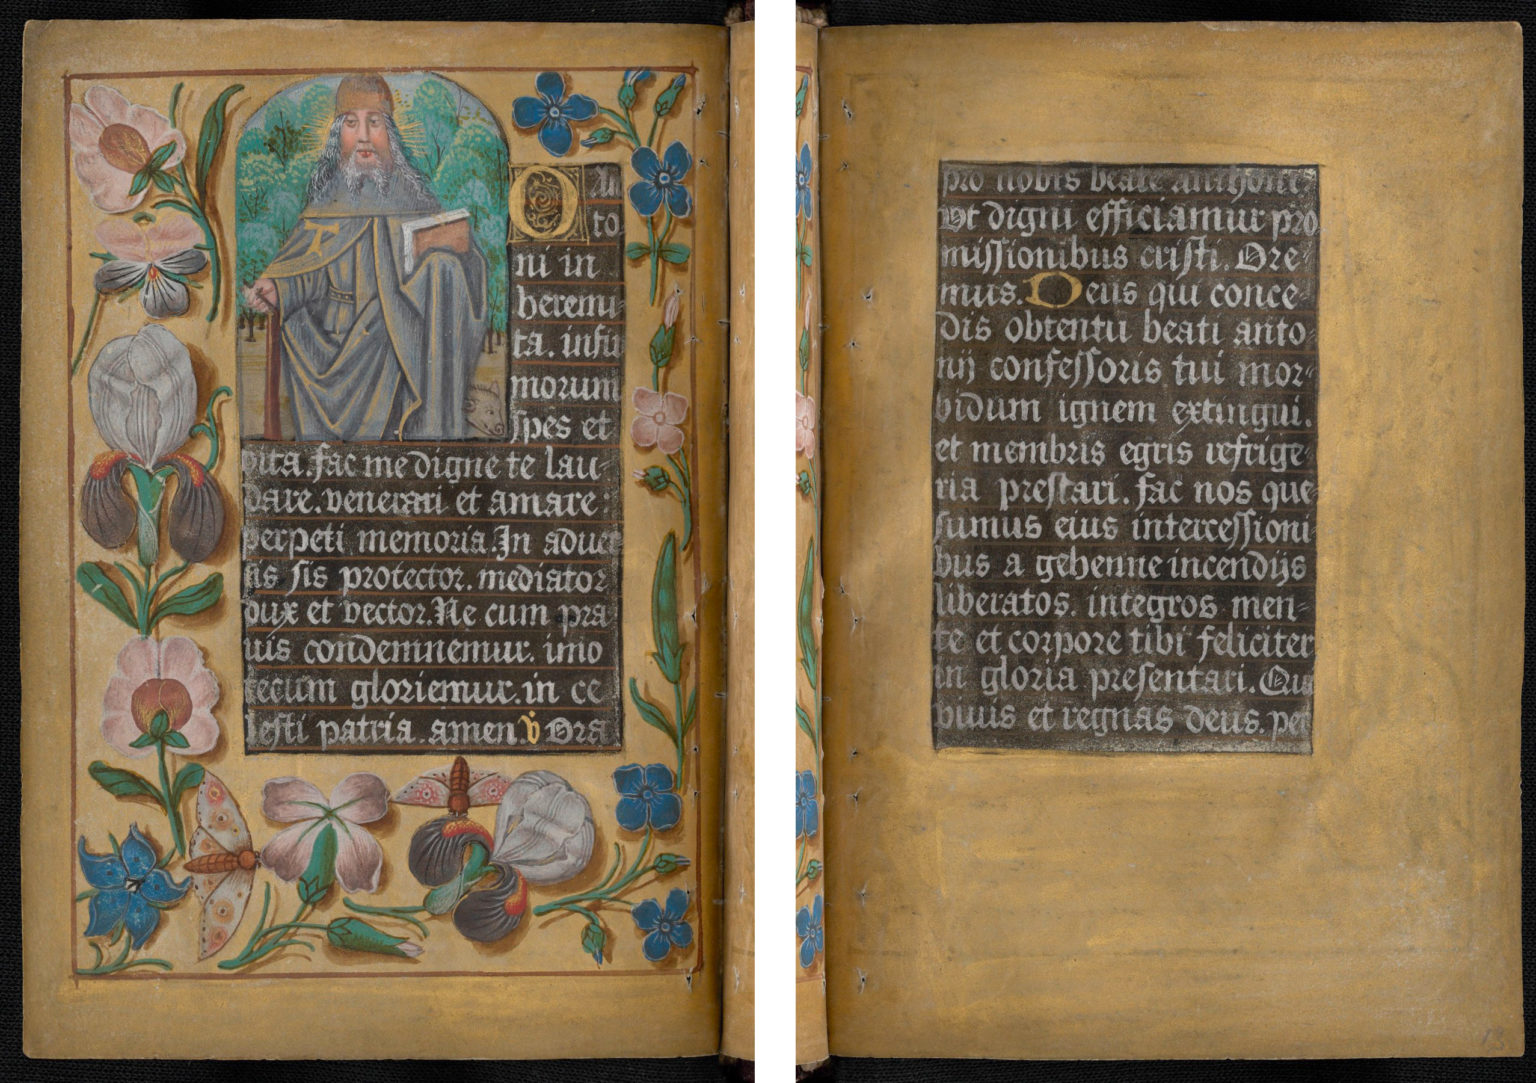 O An
to
ni in
heremi
ta. infir
morum
spes et
vita. fac me digne te lau-
dare. venerari et amare:
perpeti memoria. In adver
sis sis protector. mediator
dux et vector. Ne cum pra
uis condemnemur. imo
tecum gloriemur. in ce
lesti patria. amen. v Ora
pro nobis beate anthoni.
Vt digni efficiamur pro
missionibus cristi. Ore-
mus. Deus qui conce-
dis obtentu beati anto-
nij confessoris tui mor-
bidum ignem extingui.
et membris egris refrige-
ria prestari. fac nos que-
sumus eius intercessioni
bus a gehenne incendijs
liberatos. integros men-
te et corpore tibi feliciter
in gloria presentari. Qui
viuis et regnas deus. per
13